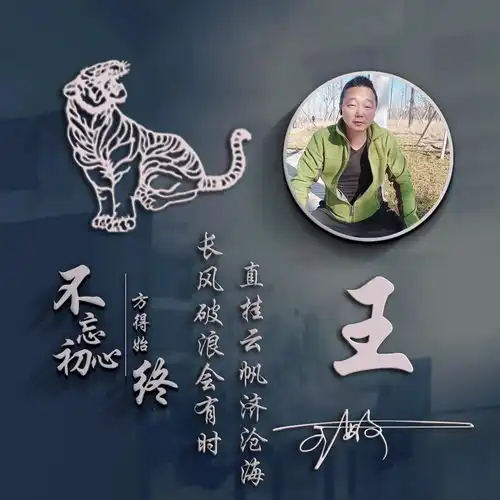 不忘初心
方得始终
长风破浪会有时
直挂云帆济沧海
王